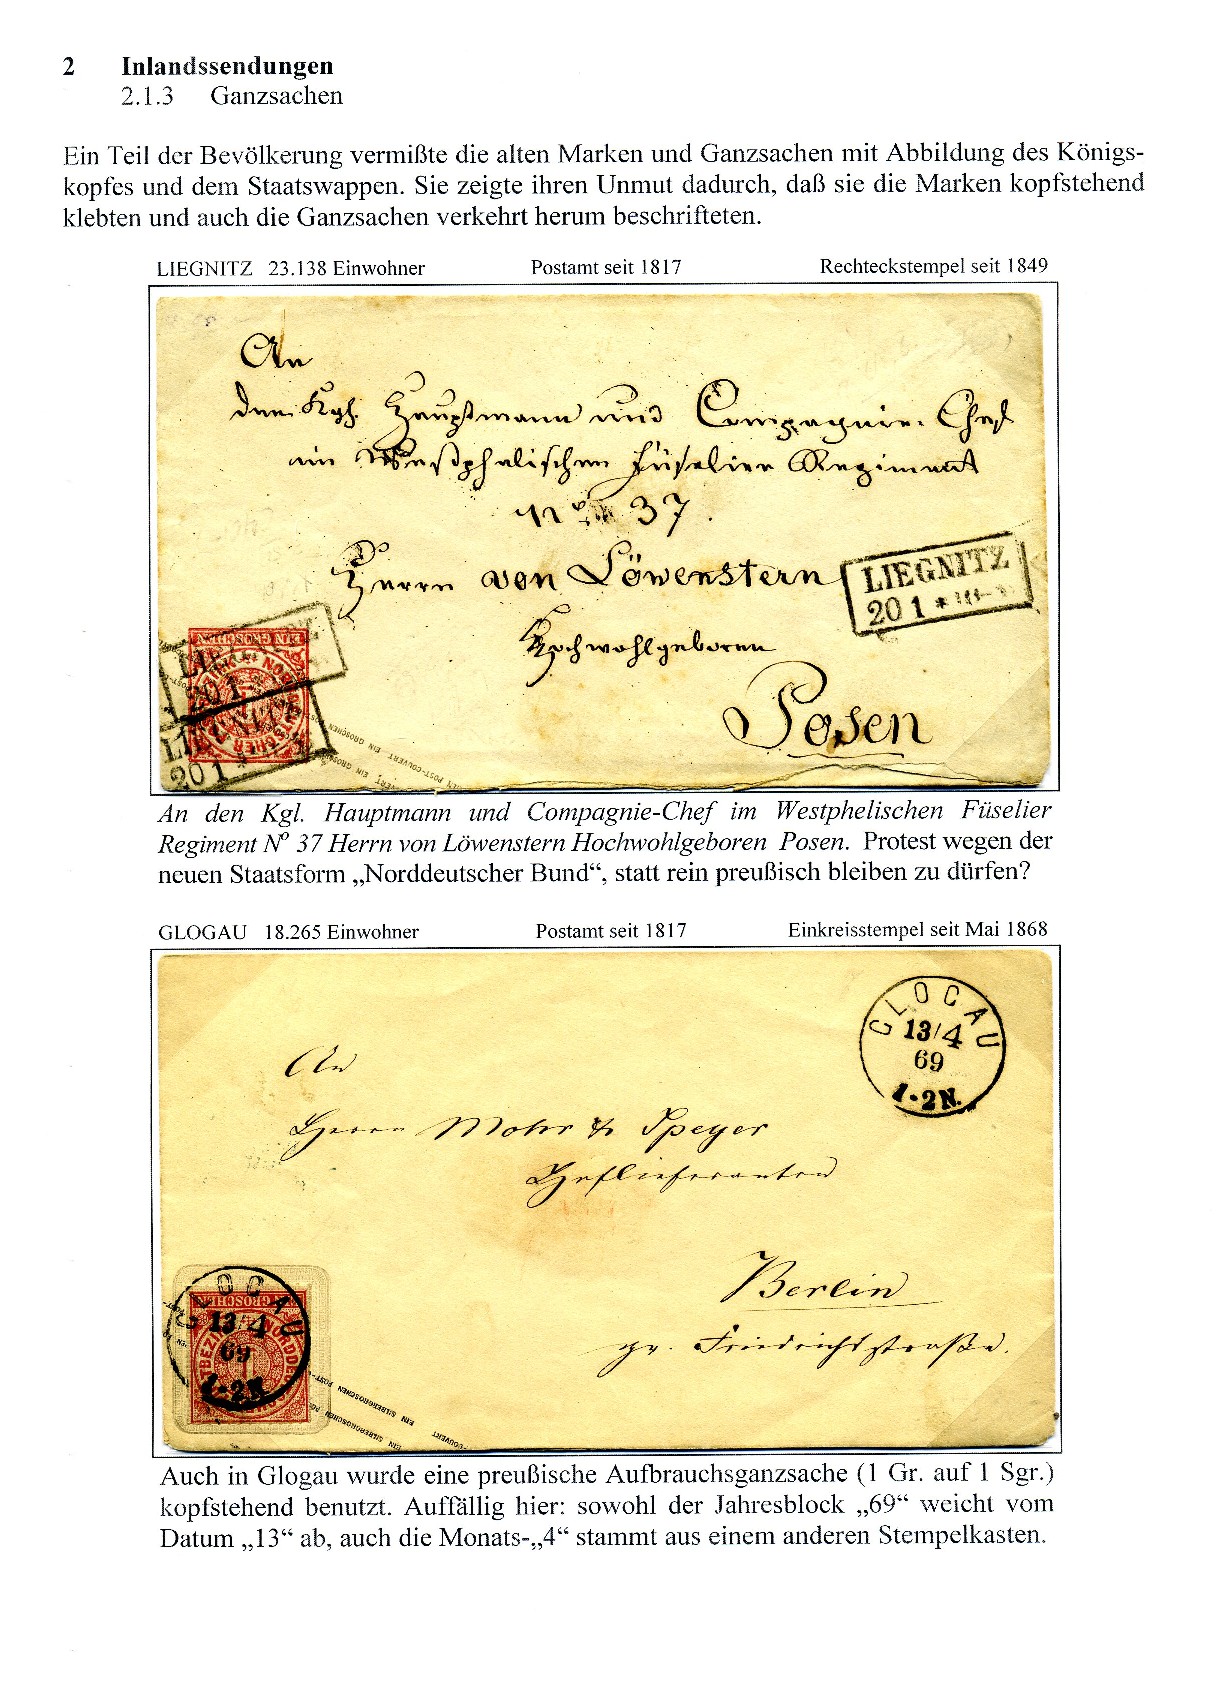 2 Inlandssendungen
2.1.3 Ganzsachen
Ein Teil der Bevölkerung vermißte die alten Marken und Ganzsachen mit Abbildung des Königs-
kopfes und dem Staatswappen. Sie zeigte ihren Unmut dadurch, daß sie die Marken kopfstehend
klebten und auch die Ganzsachen verkehrt herum beschrifteten.
LIEGNITZ 23.138 Einwohner Postamt seit 1817 Rechteckstempel seit 1849
An
den Kgl. Hauptmann und Compagnie-Chef
im Westphälischen Füselier Regiment
No 37.
Herrn von Löwenstern
LIEGNITZ
20 1 *
Hochwohlgeboren
Posen
EIN GROSCHEN
LIEGNITZ
20 1
LIEGNITZ
20 1
An den Kgl. Hauptmann und Compagnie-Chef im Westphelischen Füselier
Regiment Nº 37 Herrn von Löwenstern Hochwohlgeboren Posen. Protest wegen der
neuen Staatsform „Norddeutscher Bund“, statt rein preußisch bleiben zu dürfen?
GLOGAU 18.265 Einwohner Postamt seit 1817 Einkreisstempel seit Mai 1868
GLOGAU
13/4
69
1-2N.
An
Herrn Mohr & Speyer
Hoflieferanten
Berlin
gr. Friedrichstraße.
GROSCHEN
GLOGAU
13/4
69
1-2N.
EIN SILBERGROSCHEN POST-COUVERT
Auch in Glogau wurde eine preußische Aufbrauchsganzsache (1 Gr. auf 1 Sgr.)
kopfstehend benutzt. Auffällig hier: sowohl der Jahresblock „69“ weicht vom
Datum „13“ ab, auch die Monats-„4“ stammt aus einem anderen Stempelkasten.